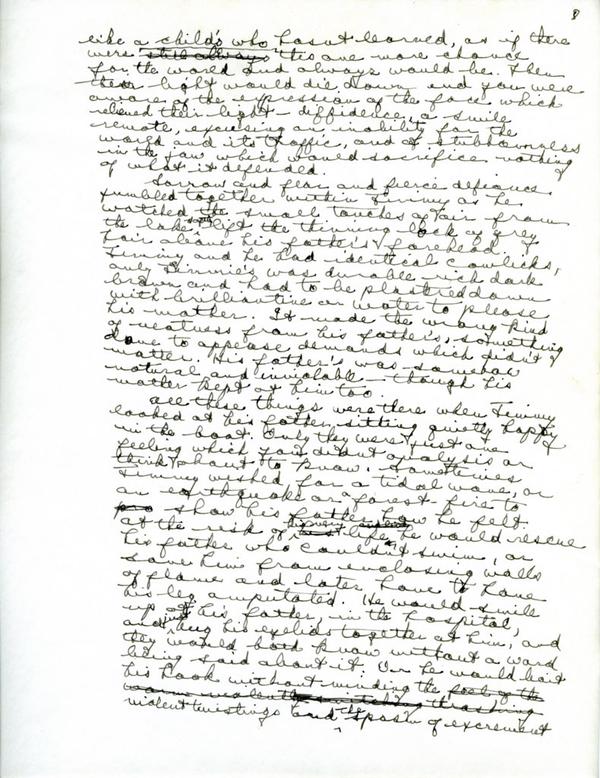 8
like a child's who hasn't learned, as if there
were still always this one more chance
for the world and always would be. Then
their light would die down and you were
aware of the expression of the face which
relieved their light - diffidence, a smile
remote, excusing an inability for the
world and its traffic, and a stubbornness
in the jaw which would sacrifice nothing
of what it defended.
Sorrow and fear and fierce defiance
tumbled together within Timmy as he
watched the small touches of air from
the lake lift the thinning lock of grey
hair above his father's forehead.
Timmy and he had identical cowlicks,
only Timmie's was durable rich dark
brown and had to be plastered down
with brilliantine or water to please
his mother. It made the wrong kind
of neatness from his father's, something
done to appease demands which didn't
matter. His father's was somehow
natural and inviolable - though his
mother kept at him too.
All these things were there when Timmy
looked at his father sitting quietly happy
in the boat. Only they were just one
feeling which you didn't analysis or
think about to know. Sometimes
Timmy wished for a tidal wave, or
an earthquake or a forest-fire to
show his father how he felt.
at the risk of his very life, he would rescue
his father who couldn't swim, or
save him from enclosing walls
of flame and later have to have
his leg amputated. He would smile
up at his father, in the hospital,
and his eyelids together at him, and
they would both know without a word
being said about it. Or he would bait
his hook without minding the feel of the
warm violently twitching thrashing
violent twistings and the spasm of excrement